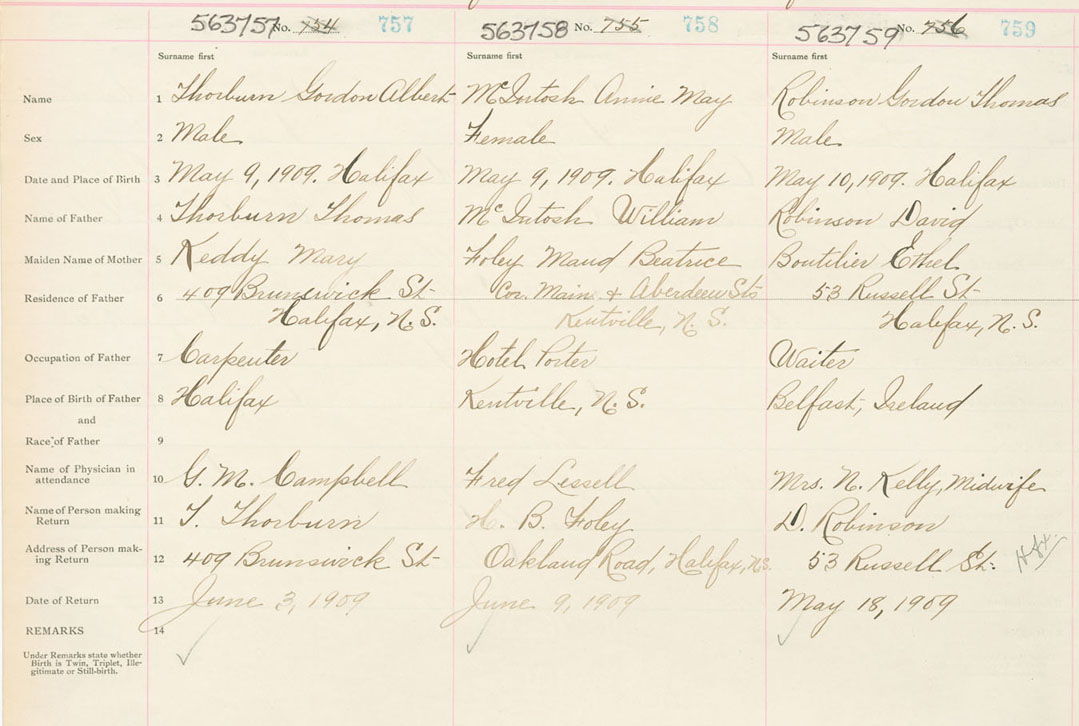 563757 No. 754 757 563758 No. 755 758 563759 No. 756 759
Surname first Surname first Surname first
Name 1 Thorburn Gordon Albert McIntosh Annie May Robinson Gordon Thomas
Sex 2 Male Female Male
Date and Place of Birth 3 May 9, 1909. Halifax May 9, 1909. Halifax May 10, 1909. Halifax
Name of Father 4 Thorburn Thomas McIntosh William Robinson David
Maiden Name of Mother 5 Keddy Mary Foley Maud Beatrice Boutilier Ethel
Residence of Father 6 409 Brunswick St Cor. Main & Aberdeen Sts 53 Russell St
Halifax, N.S. Kentville, N.S. Halifax, N.S.
Occupation of Father 7 Carpenter Hotel Porter Waiter
Place of Birth of Father 8 Halifax Kentville, N.S. Belfast, Ireland
and
Race of Father 9
Name of Physician in
attendance 10 G. M. Campbell Fred Lessell Mrs. N. Kelly, Midwife
Name of Person making
Return 11 T. Thorburn H. B. Foley D. Robinson
Address of Person mak-
ing Return 12 409 Brunswick St Oakland Road, Halifax, N.S. 53 Russell St. Hfx.
Date of Return 13 June 3, 1909 June 9, 1909 May 18, 1909
REMARKS 14
Under Remarks state whether
Birth is Twin, Triplet, Ille-
gitimate or Still-birth.